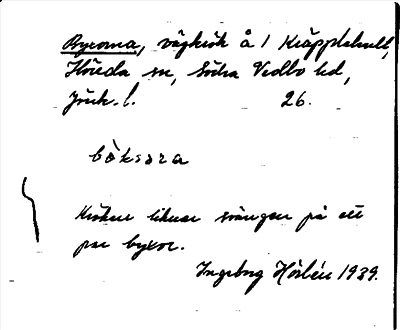 Byxorna, vägkrök å 1 Kräpplehult,
Höreda sn, Södra Vedbo hd,
Jönk. l. 26.
bòksəra
Kröken liknar svängen på ett
par byxor.
Ingeborg Hörlén 1939.